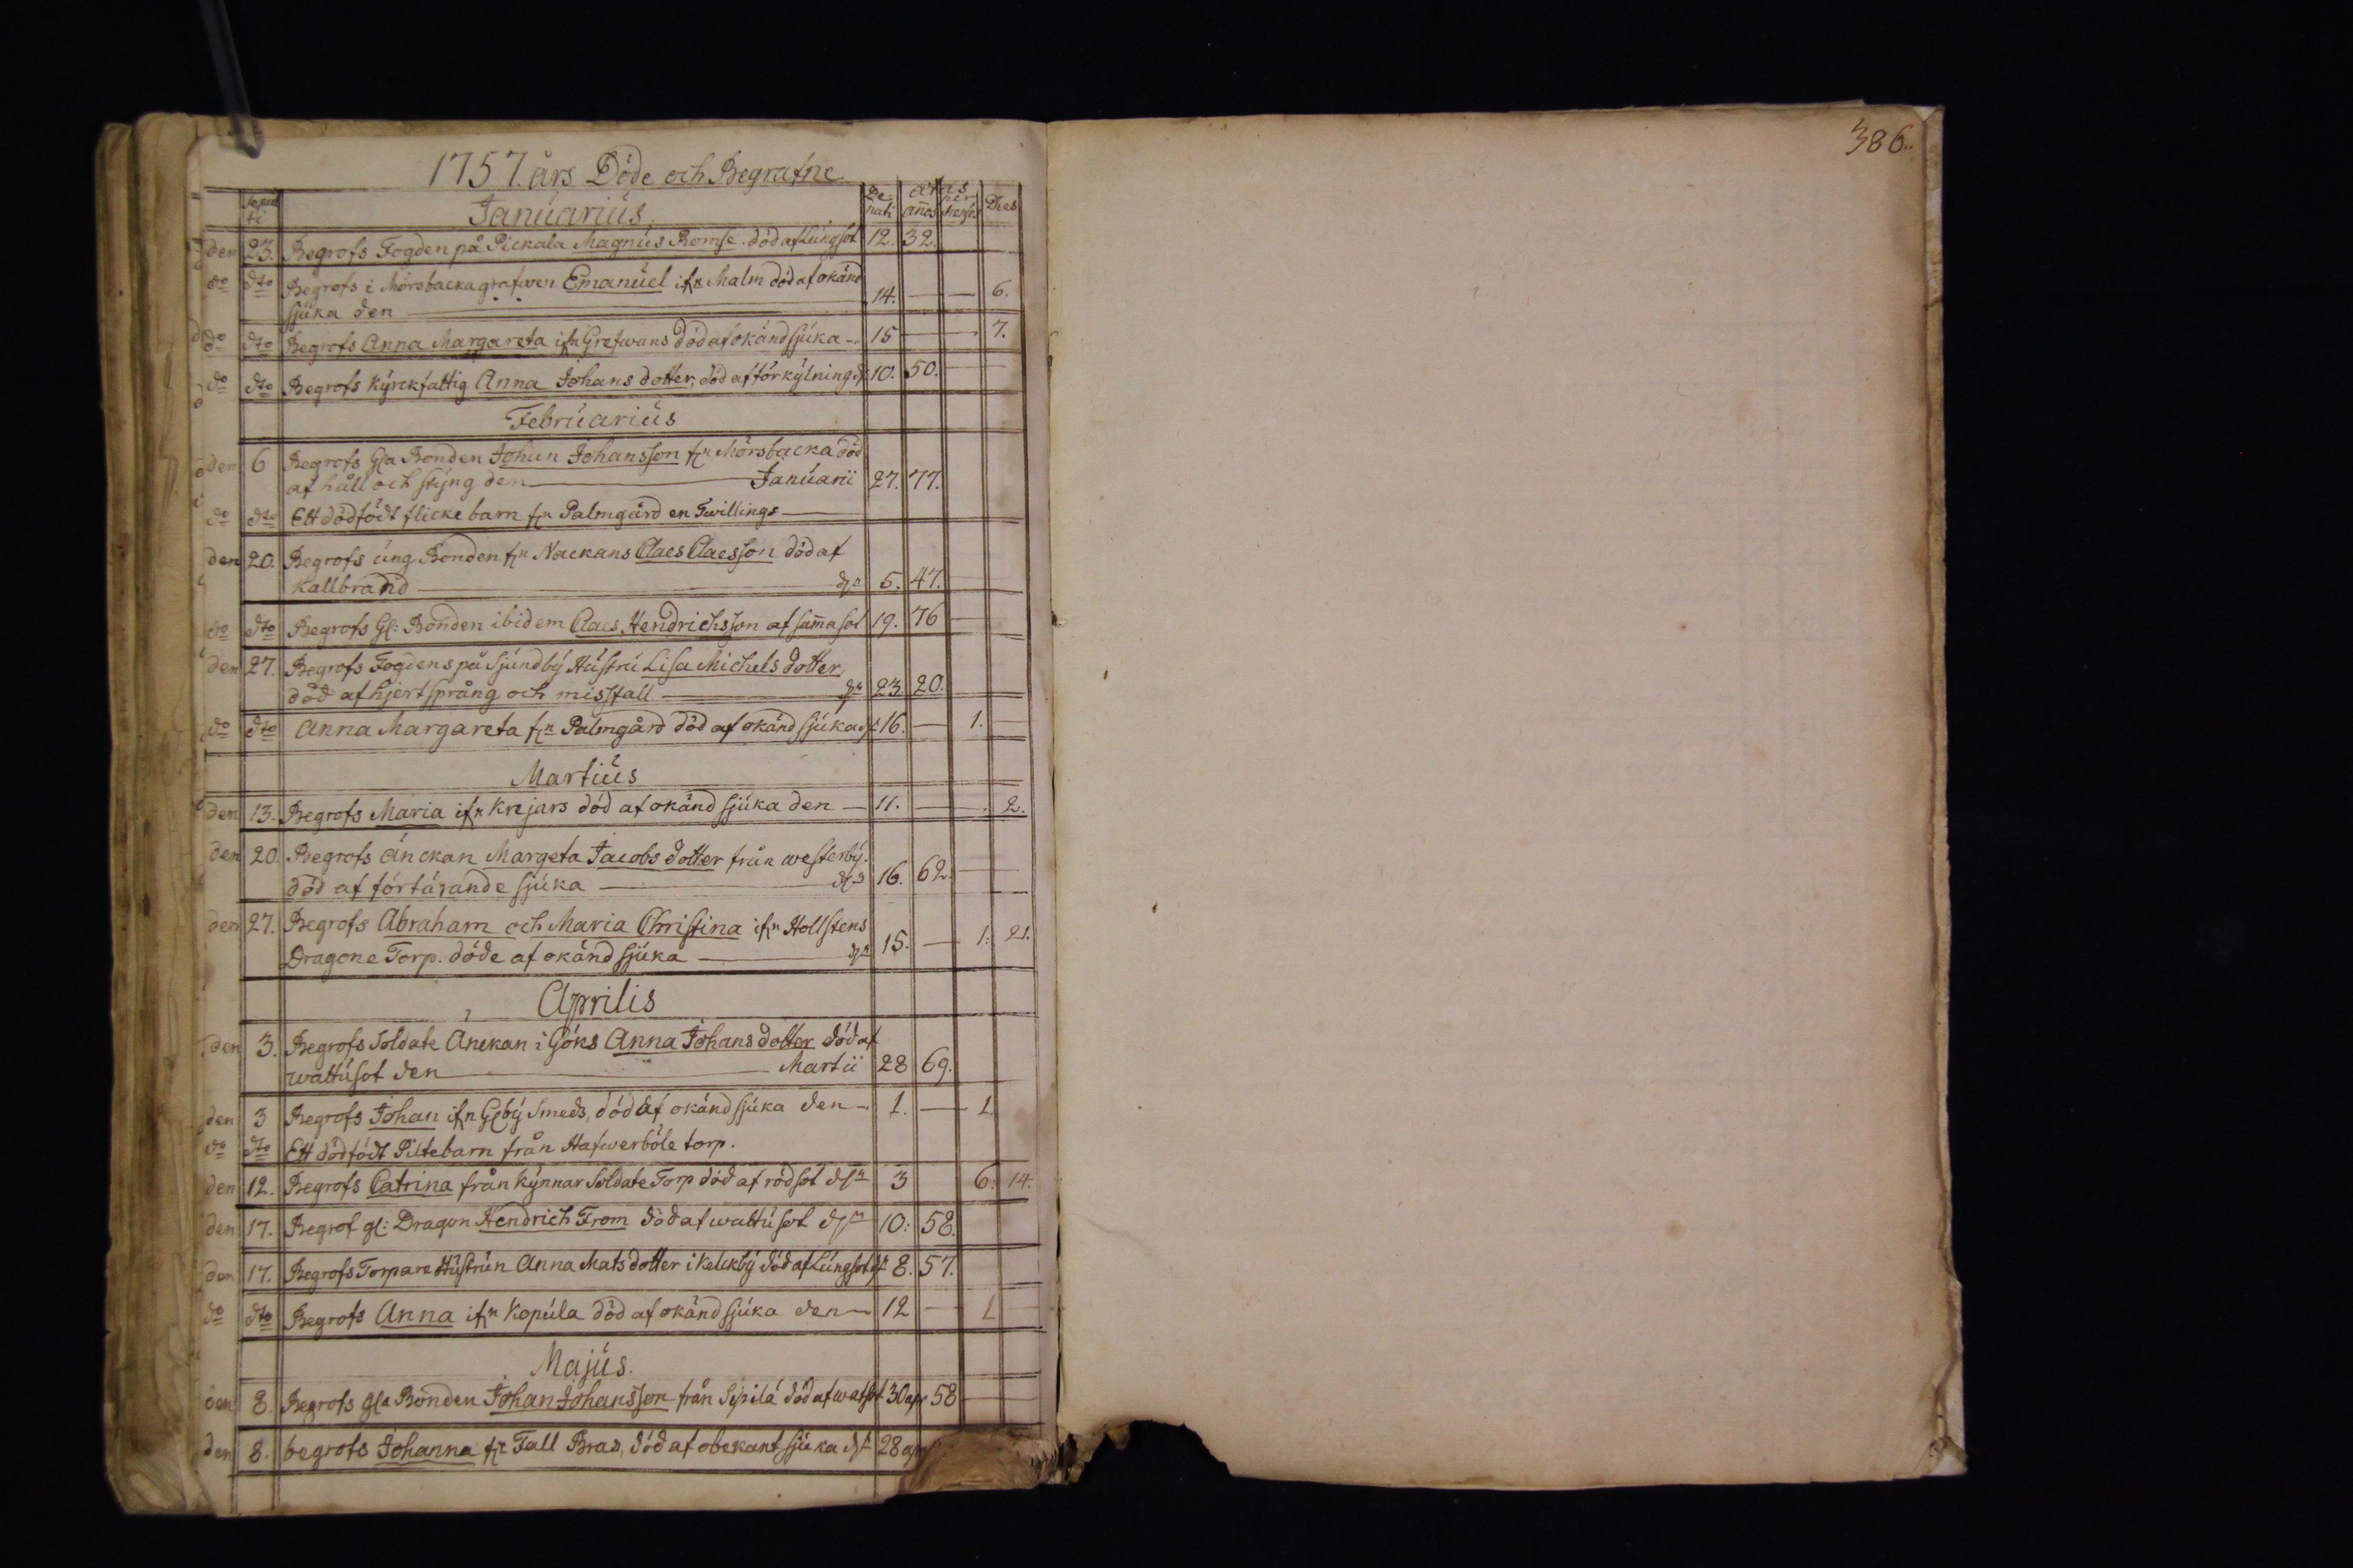 386.
1757. års Döde och Begrafne
Sepul ti Januarius. De nati annos mens. Dies
den 23. Begrofs Fogden på Pickala Magnus Romse. död af Lungsot 12. 32.
do dto Begrofs i Mörsbacka grafwen Emanuel ifrn Malm död af okänd
sjuka den — 14. — — 6.
do dto Begrofs Anna Margareta ifrn Grefwans död af okänd sjuka — 15 — — 7.
do dto Begrofs Kyrckfattig Anna Johans dotter, död af förkylning dn 10. 50. —
Februarius
den 6 Begrofs Gla Bonden Johan Johansson frn Mörsbacka död
af håll och styng den — Januarii 27. 77.
do dto Ett dödfödt flicke barn frn Palmgård en Twillings —
den 20. Begrofs ung Bonden frn Nackans Claes Claesson död af
Kallbrand — dn 5. 47. —
do dto Begrofs Gl: Bonden ibidem Claes Hendrichsson af samma sot 19. 76 —
den 27. Begrofs Fogdens på Sjundby Hustru Lisa Michels dotter
död af hjertsprång och missfall — dn 23 20.
do dto Anna Margareta frn Palmgård död af okänd sjuka dn 16. — 1. —
Martius
den 13. Begrofs Maria ifrn Krejars död af okänd sjuka den — 11. — . 2.
den 20. Begrofs Änckan Margeta Jacobs dotter från westerby.
död af förtärande sjuka — dn 16. 62. —
den 27. Begrofs Abraham och Maria Christina ifrn Hollstens
Dragone Torp. döde af okänd sjuka — dn 15. — 1. 21.
Aprilis
den 3. Begrofs Soldate Anckan i Göks Anna Johans dotter död af
wattusot den — Martii 28 69.
den 3 Begrofs Johan ifrn Gåby Smeds, död af okänd sjuka den — 1. — 1
do dto Ett dödfödt Piltebarn från Hafwerböle torp.
den 12. Begrofs Catrina från Kynnar Soldate Torp död af rödsot dn 3 6. 14.
den 17. Begrof gl: Dragon Hendrich From död af wattusot dn 10: 58.
den 17. Begrofs Torpare Hustrun Anna Mats dotter i Kelckby död af Lungsot dn 8. 57.
do dto Begrofs Anna ifrn Kopula död af okänd sjuka den — 12 — 1 —
Majus.
den 8. Begrofs gla Bonden Johan Johansson från Sipilä död af watsot 30 apr 58 —
den 8. begrofs Johanna frn Tall Bras, död af obekant sjuka dn 28 apr